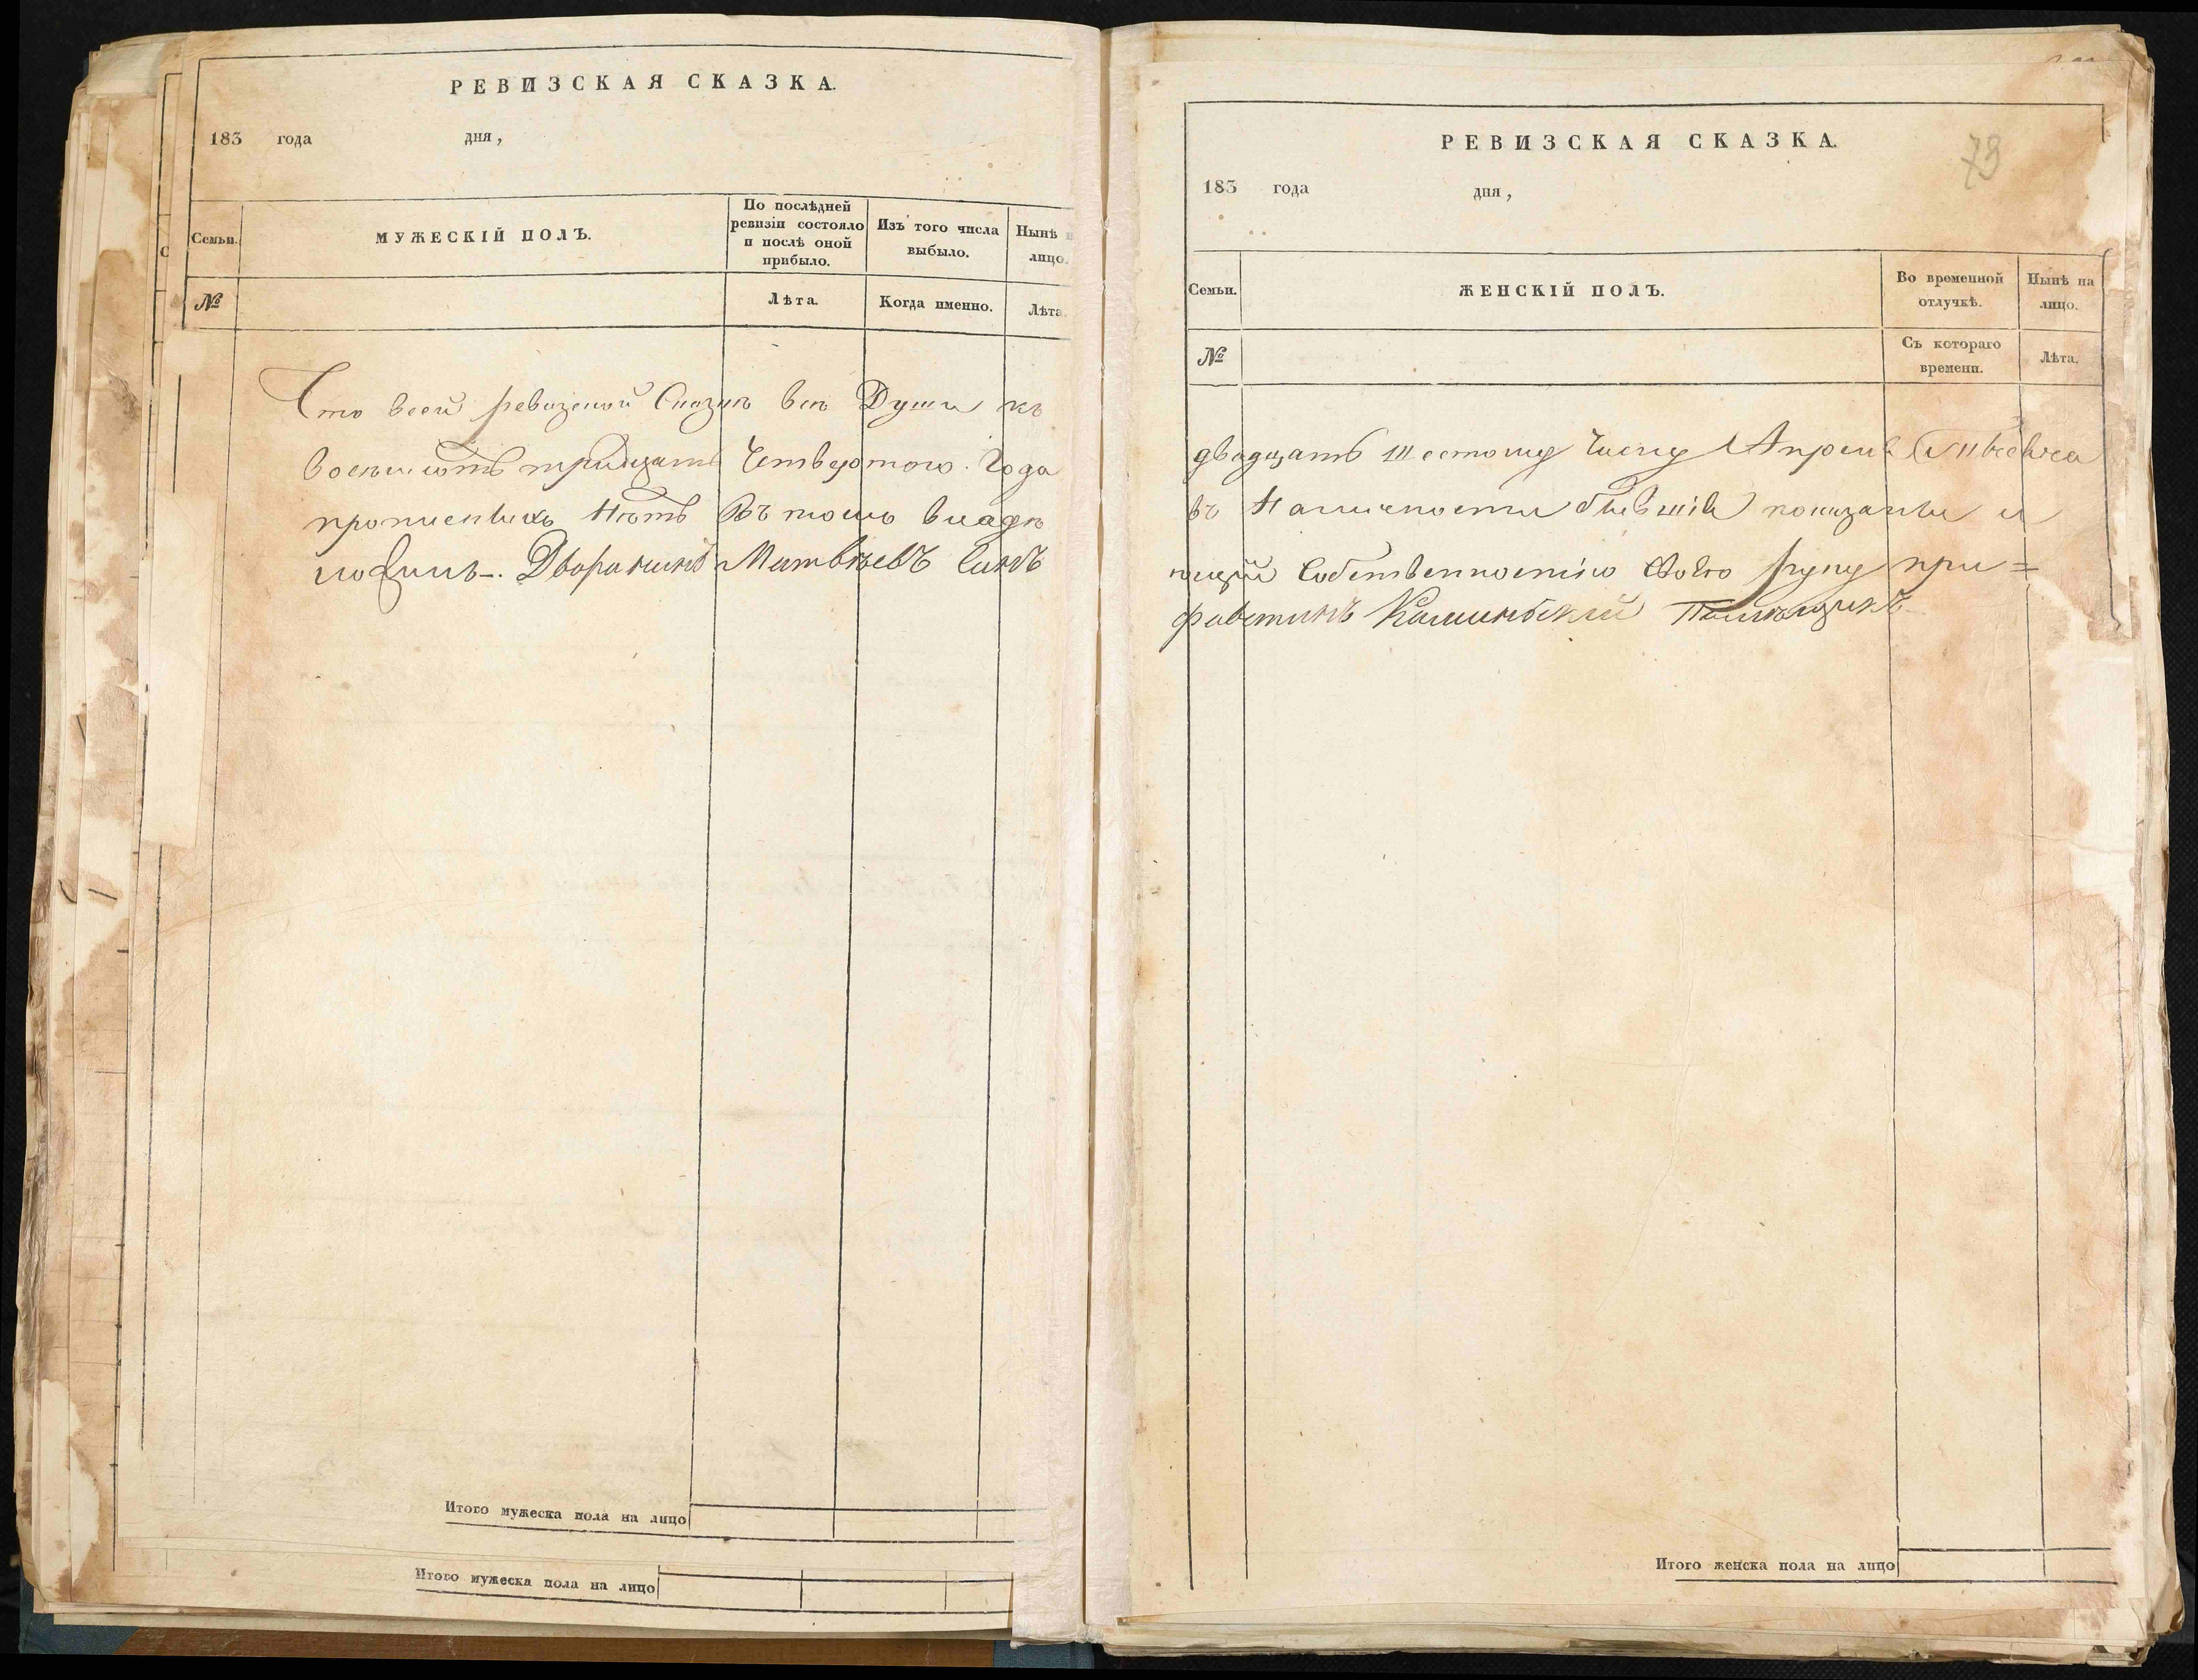 РЕВИЗСКАЯ СКАЗКА.
183 года дня,
Семьи.
МУЖЕСКІЙ ПОЛЪ.
По послѣдней ревизіи состояло и послѣ оной прибыло.
Изъ того числа выбыло.
Нынѣ
лицо.
№
Лѣта.
Когда именно.
Лѣта.
Что всей ревизской Сказкѣ всѣ Души къ
восемьсотъ тридцать Четвертого Года
Нѣтъ Въ томъ
Дворянинъ Матвѣевъ Сынъ
Итого мужеска пола на лицо
Итого мужеска пола на лицо
РЕВИЗСКАЯ СКАЗКА.
73
183 года дня,
Семьи.
ЖЕНСКІЙ ПОЛЪ.
Во временной отлучкѣ.
Нынѣ на лицо.
№
Съ котораго времени.
Лѣта.
двадцать шестому Числу Апреля
въ Наличности бывшія показаны и
Собственностію Свою руку при=
Помѣщикъ
Итого женска пола на лицо